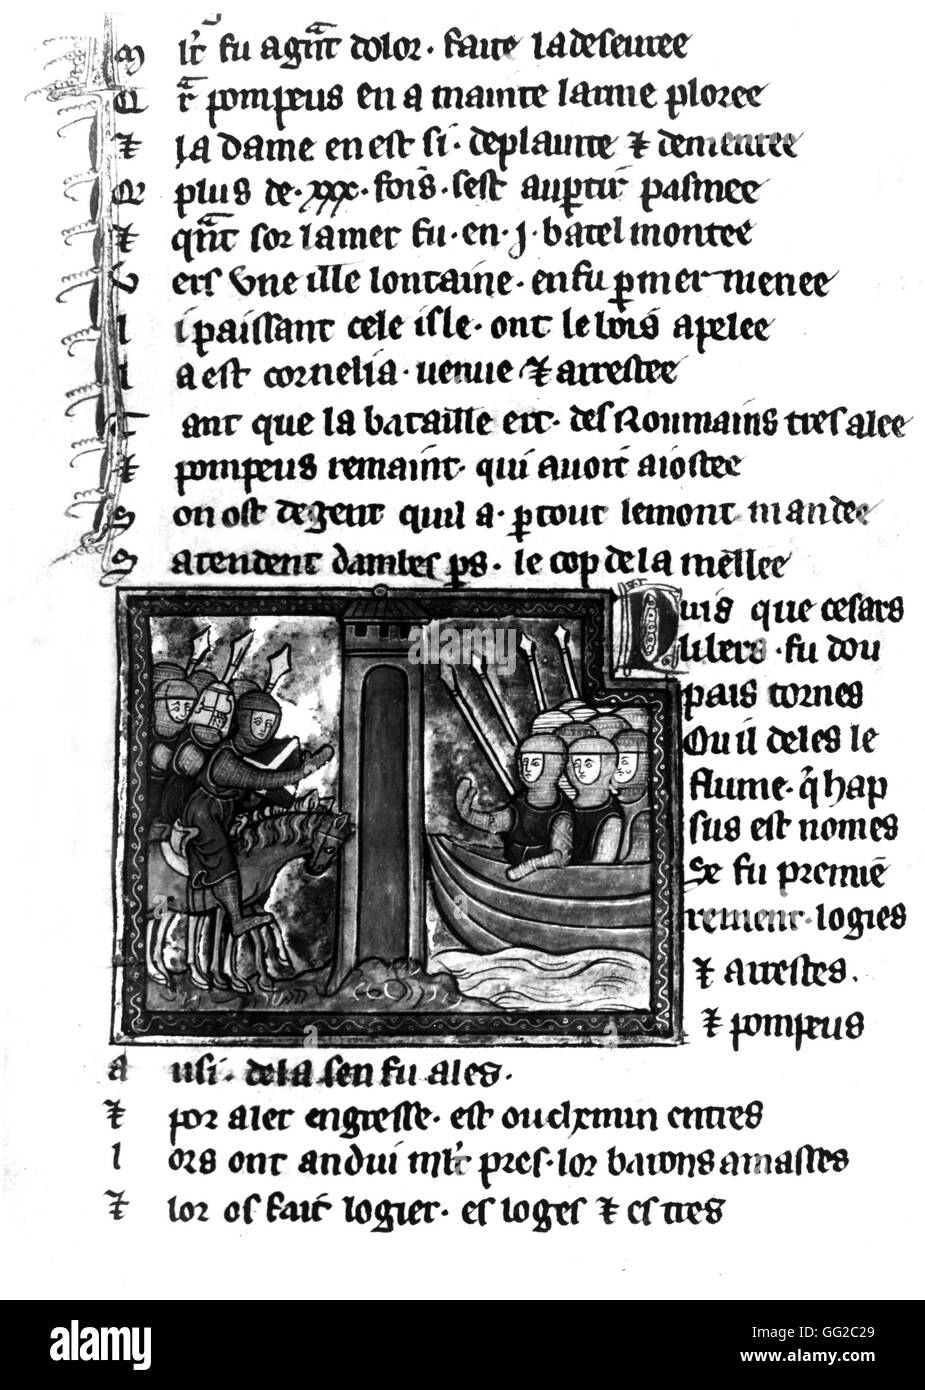 M lt' fu agnt dolor · faite la deseuree
Q r pompeus en a mainte larme ploree
⁊ la dame en est si · deplainte ⁊ dementee
Q plus de · xxx · fois · sest au ptir pasmee
⁊ qnt sor la mer fu · en · j · batel montee
V ers vne ille lontaine · en fu p mer menee
l i paissant cele isle · ont le bois apelee
l a est cornelia · venue ⁊ arrestee
T ant que la bataille ert · des Roumains tresalee
⁊ pompeus remaint · qui auoit aiostee
S on ost de gent quil a · ptout le mont mandee
S atendent dambes ps · le cop de la mellee
Puis que cesars
li bers · fu dou
pais tornes
Qui deles le
flume · q hap
sus est nomes
Se fu premie
rement · logies
⁊ arrestes ·
⁊ pompeus
a usi · de la sen fu ales ·
⁊ por aler engresse · est ou chemin entres
l ors ont andui mlt' pres · lor barons amasses
⁊ lor os fait logier · es loges ⁊ es tres
alamy
Image ID: GG2C29
www.alamy.com